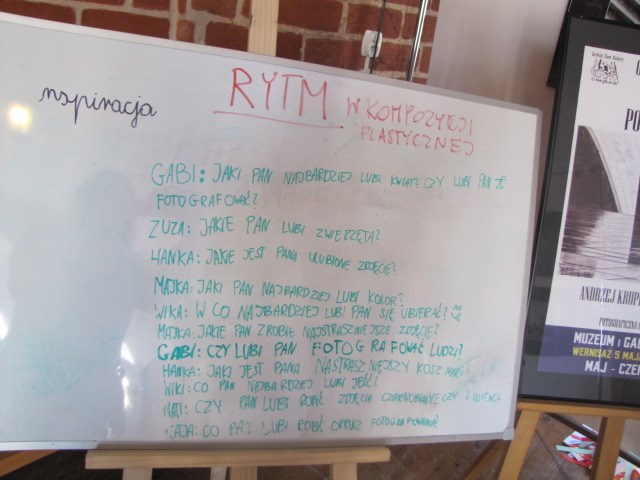 inspiracja
RYTM W KOMPOZYCJI
PLASTYCZNEJ
GABI: JAKI PAN NAJBARDZIEJ LUBI KWIAT? CZY LUBI PAN JE
FOTOGRAFOWAĆ?
ZUZA: JAKIE PAN LUBI ZWIERZĘTA?
HANKA: JAKIE JEST PANA ULUBIONE ZDJĘCIE?
MAJKA: JAKI PAN NAJBARDZIEJ LUBI KOLOR?
WIKA: W CO NAJBARDZIEJ LUBI PAN SIĘ UBIERAĆ?
MAJKA: JAKIE PAN ZROBIŁ NAJSTRASZNIEJSZE ZDJĘCIE?
GABI: CZY LUBI PAN FOTOGRAFOWAĆ LUDZI?
HANKA: JAKI JEST PANA NASTRASZNIEJSZY KOSZMAR?
WIKI: CO PAN NAJBARDZIEJ LUBI JEŚĆ?
CZY PAN LUBI ROBIĆ ZDJĘCIA CZARNOBIAŁE CZY
KAJA: CO PAN LUBI ROBIĆ OPRÓCZ FOTOGRAFOWANIA?
ANDRZEJ KRUPA
MUZEUM I GAL
WERNISAŻ 5 MAJA
MAJ - CZER